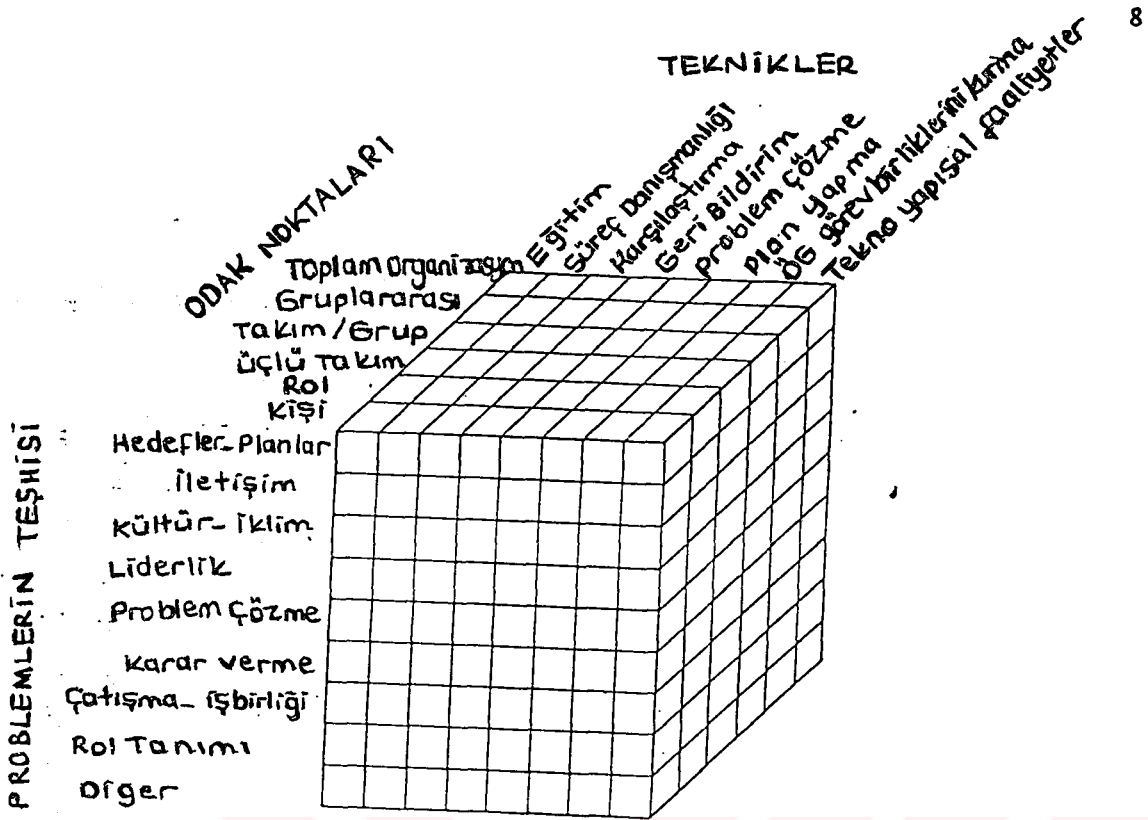 8
TEKNİKLER
Eğitim
Süreç Danışmanlığı
Karşılaştırma
Geri Bildirim
Problem Çözme
Plan yapma
ÖG görev birliklerini kurma
Tekno yapısal faaliyetler
ODAK NOKTALARI
Toplam Organizasyon
Gruplararası
Takım/Grup
Üçlü Takım
Rol
Kişi
PROBLEMLERİN TEŞHİSİ
Hedefler-Planlar
İletişim
Kültür-İklim
Liderlik
Problem Çözme
Karar verme
Çatışma-İşbirliği
Rol Tanımı
Diğer